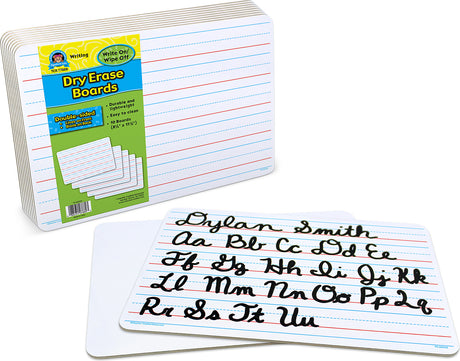 Writing
Write On/
Wipe Off
Dry Erase
Boards
Double-sided
• Durable and
lightweight
• Easy to clean
• 10 Boards (8¼" x 11¾")
Dylan Smith
Aa Bb Cc Dd Ee
Ff Gg Hh Ii Jj Kk
Ll Mm Nn Oo Pp Qq
Rr Ss Tt Uu